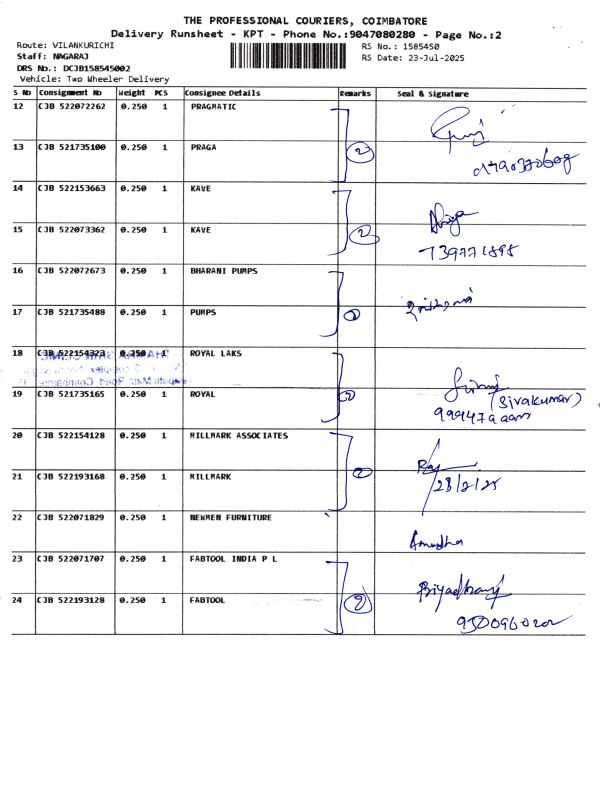 THE PROFESSIONAL COURIERS, COIMBATORE
Delivery Runsheet - KPT - Phone No.:9047080280 - Page No.:2
Route: VILANKURICHI
RS No.: 1585450
Staff: NAGARAJ
RS Date: 23-Jul-2025
DRS No.: DCJB158545002
Vehicle: Two Wheeler Delivery
S No Consignment No Weight PCS Consignee Details Remarks Seal & Signature
12 CJB 522072262 0.250 1 PRAGMATIC
13 CJB 521735100 0.250 1 PRAGA 2
14 CJB 522153663 0.250 1 KAVE
15 CJB 522073362 0.250 1 KAVE 2
16 CJB 522072673 0.250 1 BHARANI PUMPS
17 CJB 521735488 0.250 1 PUMPS
18 CJB 522154323 0.250 1 ROYAL LAKS
19 CJB 521735165 0.250 1 ROYAL (Sivakumar)
20 CJB 522154128 0.250 1 MILLMARK ASSOCIATES
21 CJB 522193168 0.250 1 MILLMARK
22 CJB 522071829 0.250 1 NEWMEN FURNITURE
Anusdha
23 CJB 522071707 0.250 1 FABTOOL INDIA P L
24 CJB 522193128 0.250 1 FABTOOL 2